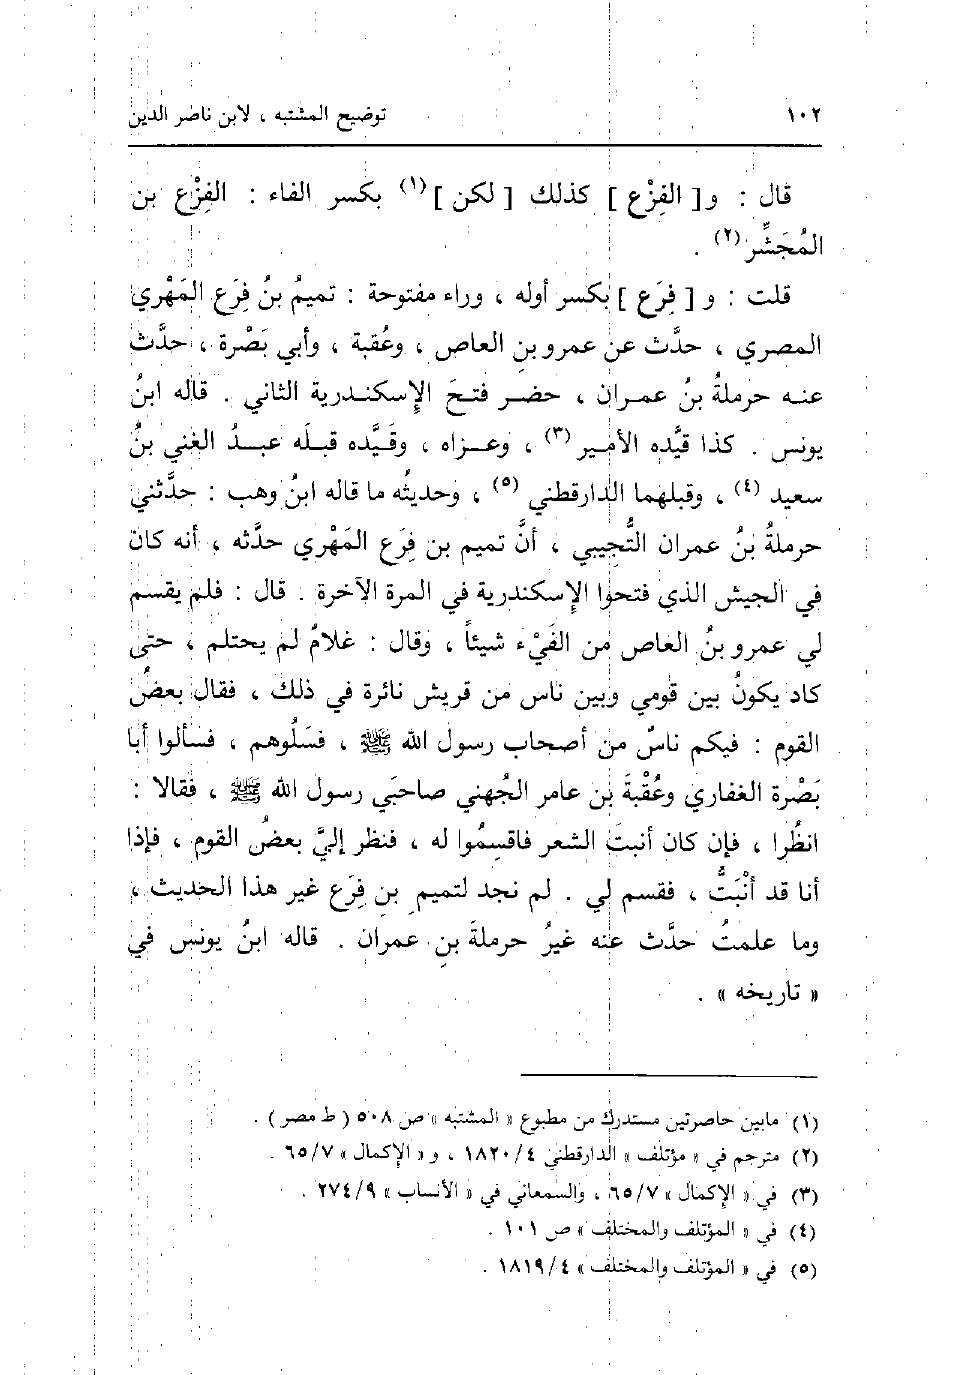 ١٠٢ توضيح المشتبه ، لابن ناصر الدين
قال : و[ الفِزْع ] كذلك [ لكن ](١) بكسر الفاء : الفِزْع بن
المُجَشِّر(٢) .
قلت : و[ فِرَع ] بكسر أوله ، وراء مفتوحة : تميمُ بنُ فِرَع المَهْري
المصري ، حدَّث عن عمرو بنِ العاص ، وعُقبة ، وأبي بَصْرة ، حدَّث
عنه حرملةُ بنُ عمران ، حضر فتحَ الإسكندرية الثاني . قاله ابنُ
يونس . كذا قيَّده الأمير (٣) ، وعزاه ، وقيَّده قبلَه عبدُ الغني بنُ
سعيد (٤) ، وقبلهما الدارقطني (٥) ، وحديثُه ما قاله ابنُ وهب : حدَّثني
حرملةُ بنُ عمران التُّجيبي ، أنَّ تميم بن فِرَع المَهْري حدَّثه ، أنه كان
في الجيش الذي فتحوا الإسكندرية في المرة الآخرة . قال : فلم يقسم
لي عمرو بنُ العاص من الفَيْء شيئاً ، وقال : غلامٌ لم يحتلم ، حتى
كاد يكونُ بين قومي وبين ناس من قريش نائرة في ذلك ، فقال بعضُ
القوم : فيكم ناسٌ من أصحاب رسول الله ﷺ ، فسَلُوهم ، فسألوا أبا
بَصْرة الغفاري وعُقْبَةَ بن عامر الجُهني صاحبَي رسول الله ﷺ ، فقالا :
انظُرا ، فإن كان أنبتَ الشعر فاقسِمُوا له ، فنظر إليَّ بعضُ القوم ، فإذا
أنا قد أنْبَتُّ ، فقسم لي . لم نجد لتميمِ بن فِرَع غير هذا الحديث ،
وما علمتُ حدَّث عنه غيرُ حرملةَ بنِ عمران . قاله ابنُ يونس في
« تاريخه » .
(١) مابين حاصرتين مستدرك من مطبوع « المشتبه » ص ٥٠٨ ( ط مصر ) .
(٢) مترجم في « مؤتلف » الدارقطني ١٨٢٠/٤ ، و « الإكمال » ٦٥/٧ .
(٣) في « الإكمال » ٦٥/٧ ، والسمعاني في « الأنساب » ٢٧٤/٩ .
(٤) في « المؤتلف والمختلف » ص ١٠١ .
(٥) في « المؤتلف والمختلف » ١٨١٩/٤ .